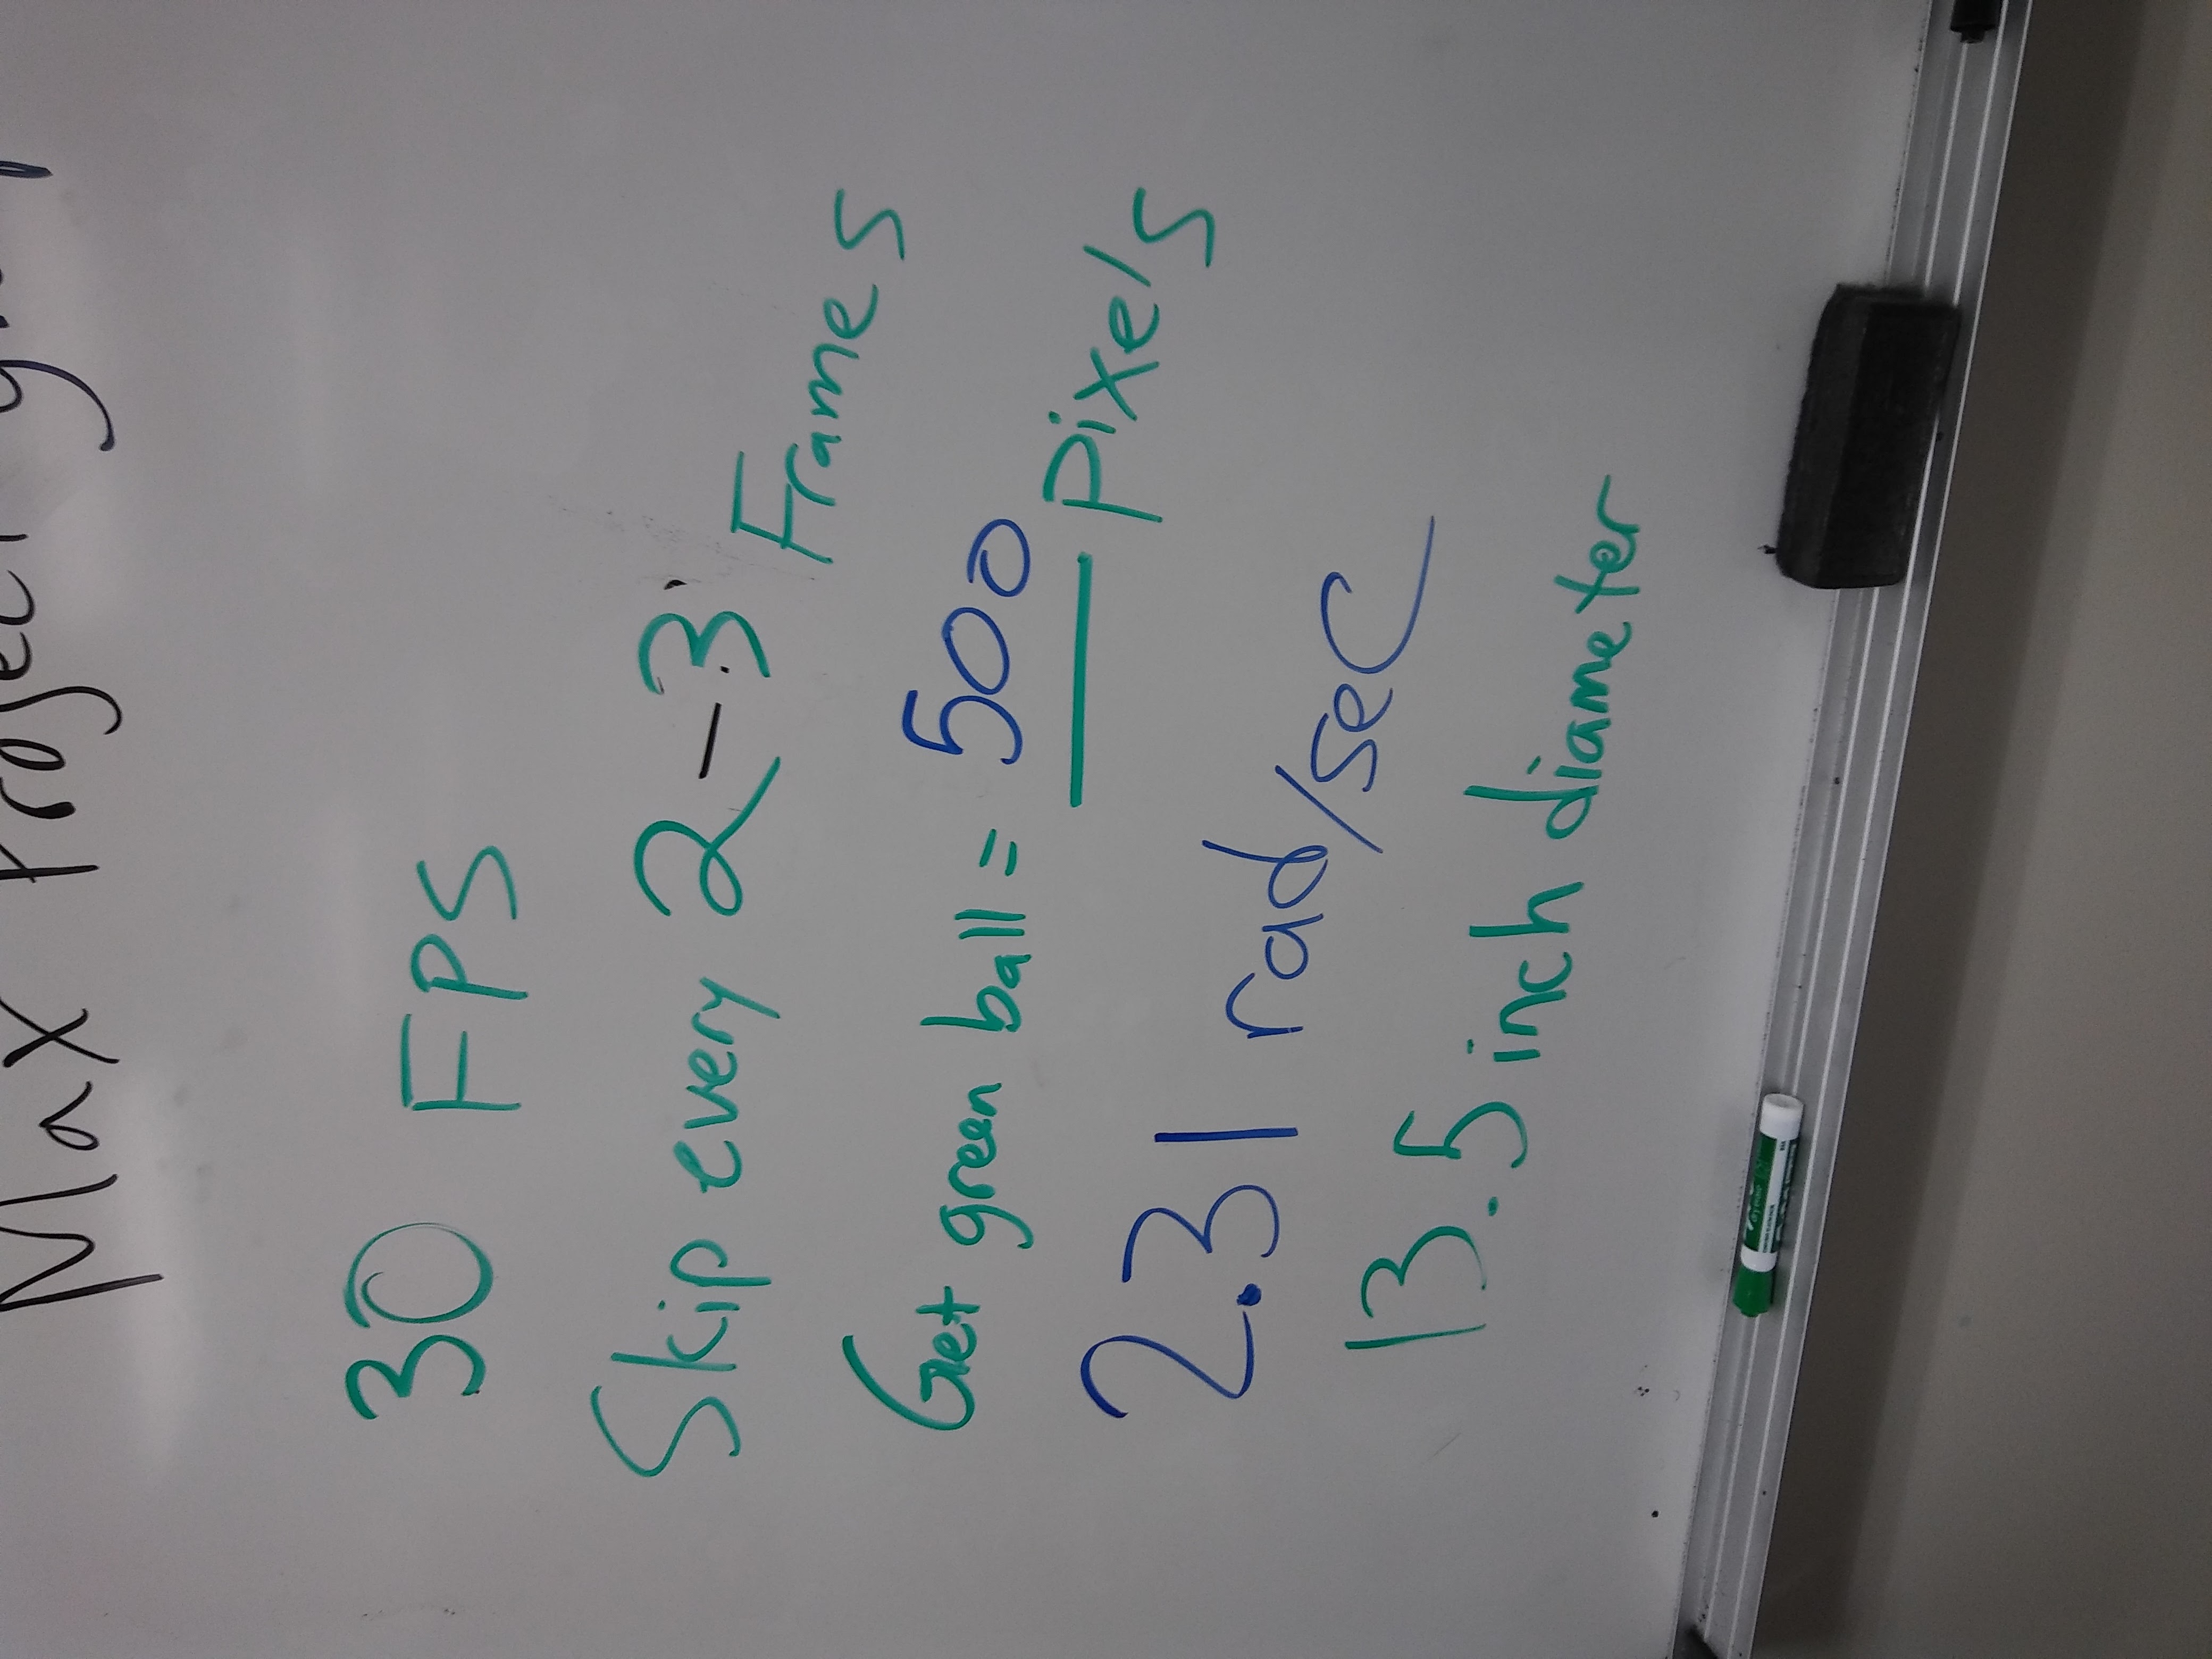 Max Project
30 FPS
Skip every 2-3 Frames
Get green ball = 500 pixels
2.31 rad/sec
13.5 inch diameter